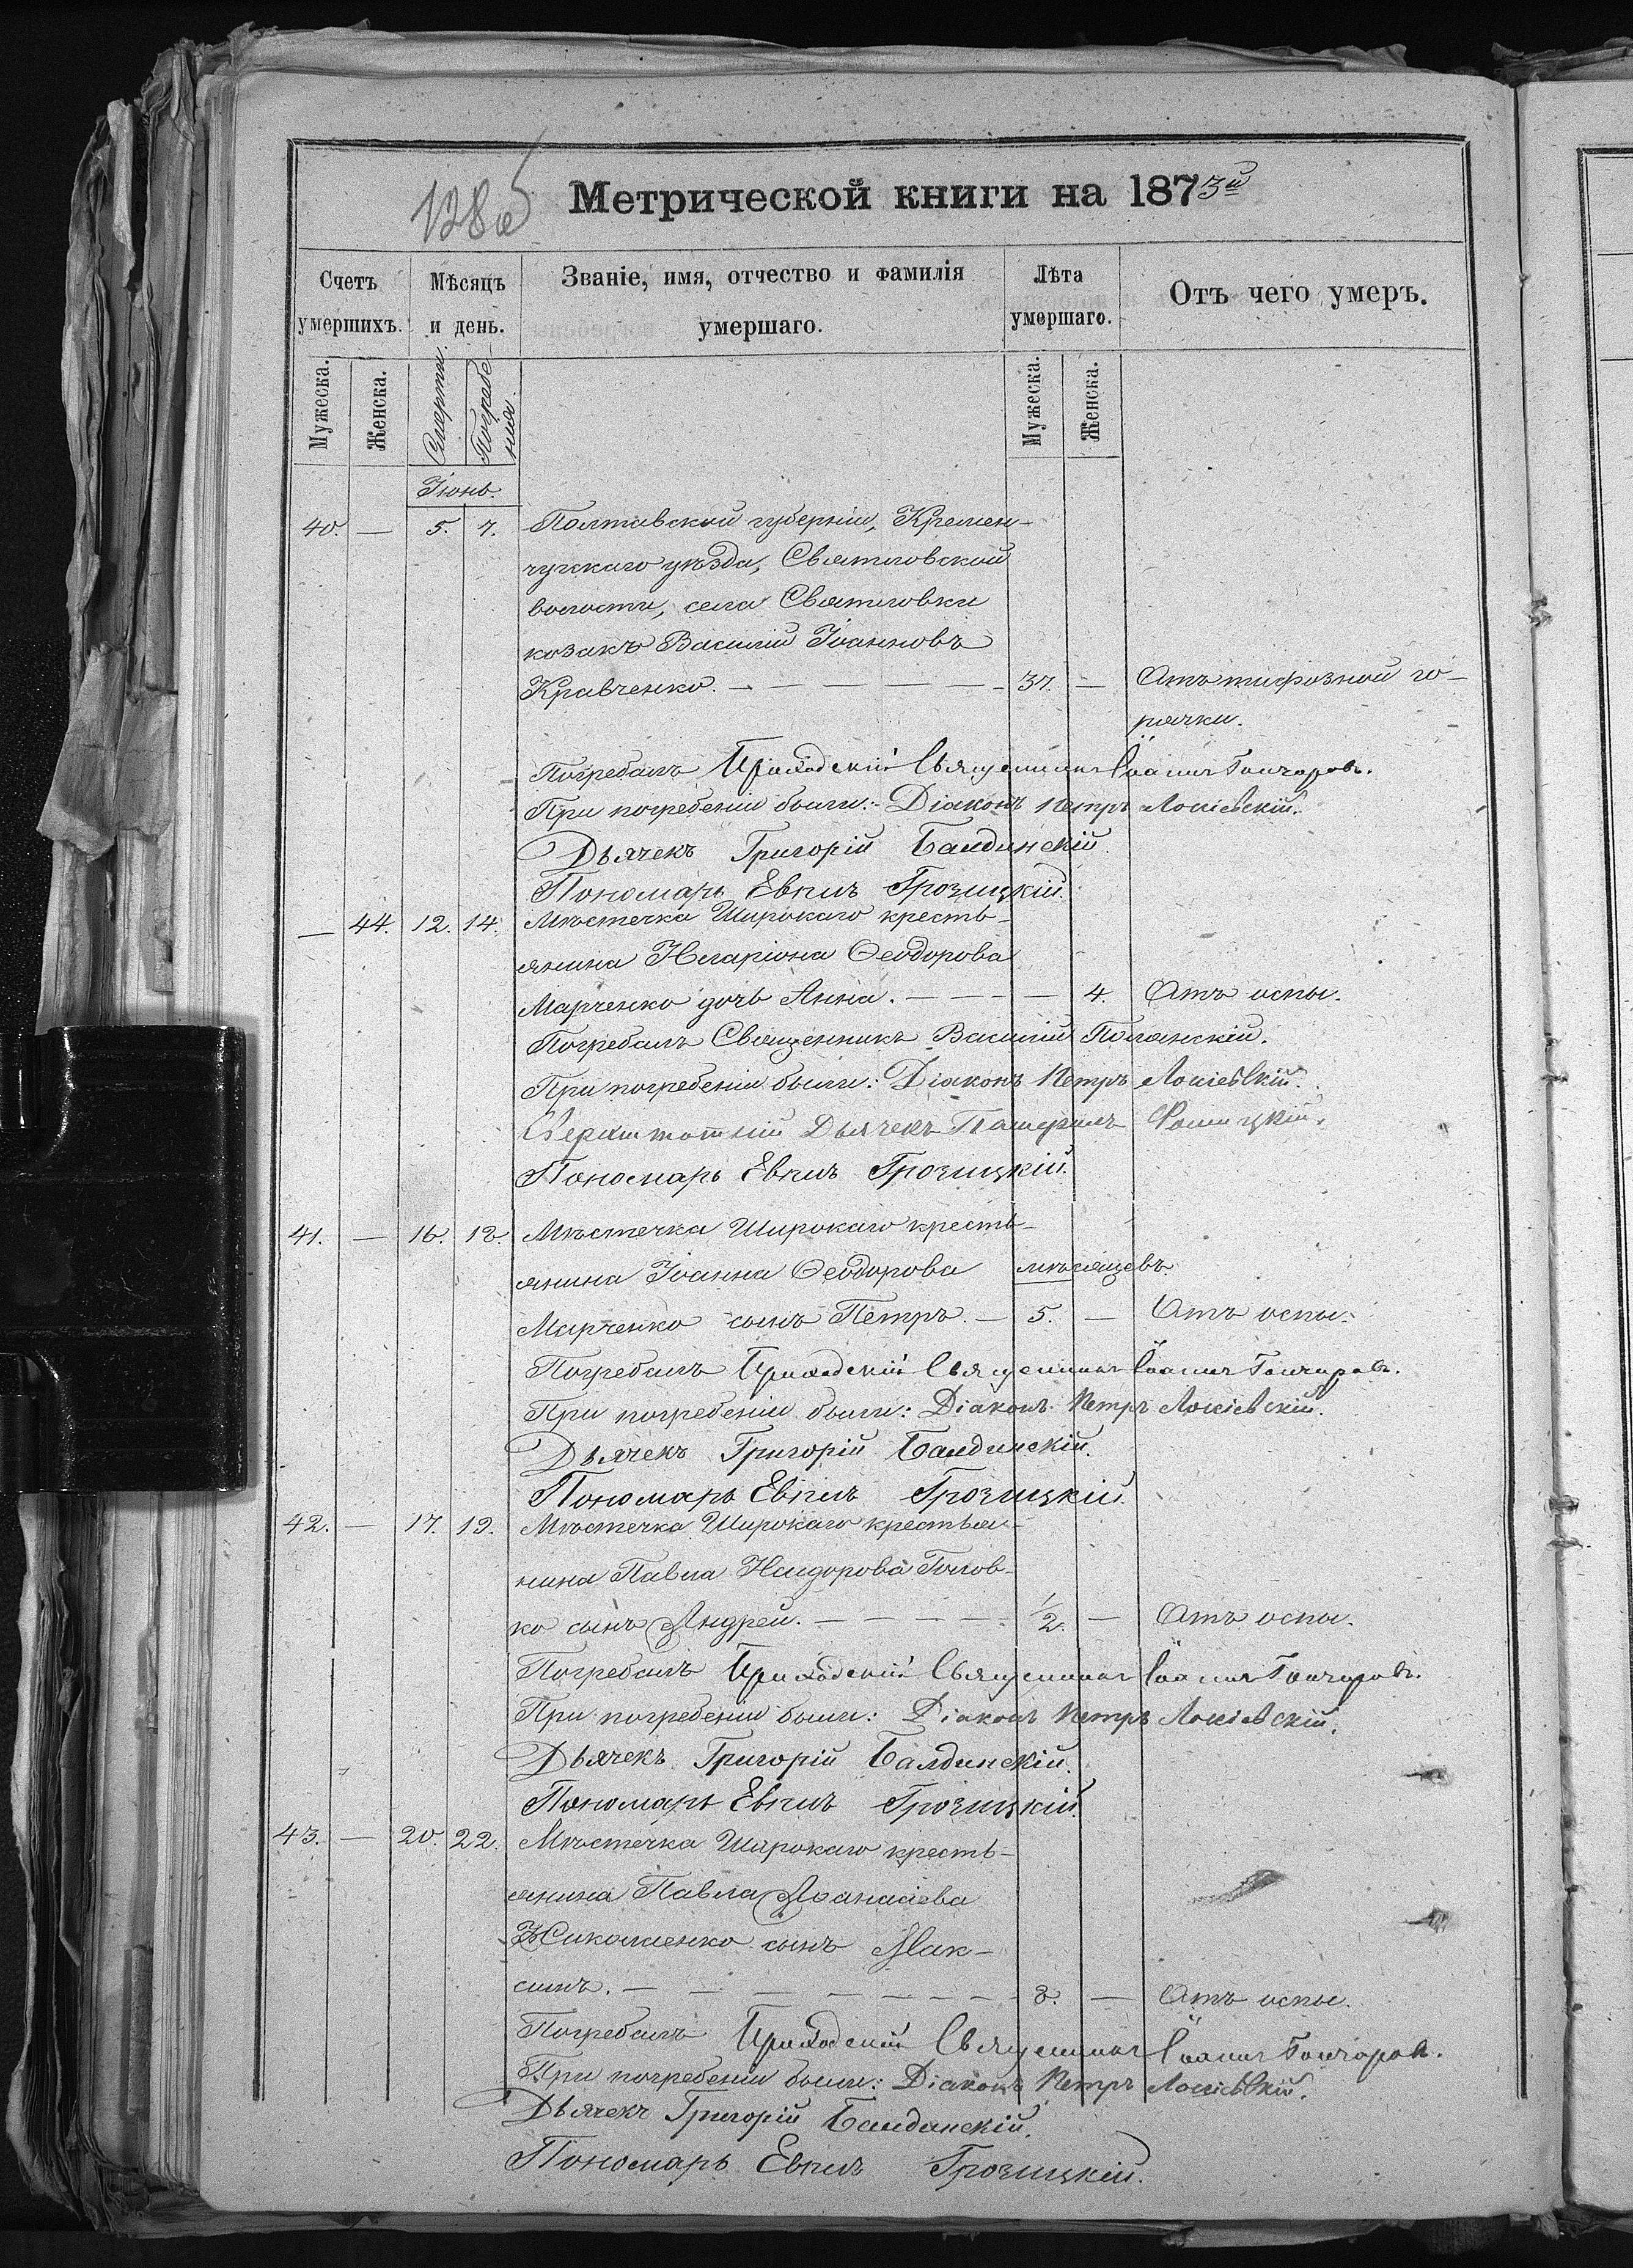 128 об
Метрической книги на 1873й
Счетъ умершихъ.
Мѣсяцъ и день.
Званіе, имя, отчество и фамилія умершаго.
Лѣта умершаго.
Отъ чего умеръ.
Мужеска.
Женска.
Смерти.
Погребенія.
Мужеска.
Женска.
Іюнь.
40. — 5. 7. Полтавской губерніи, Кремен-
чугскаго уѣзда, Святиловской
волости, села Святиловки
козакъ Василій Іоанновъ
Кравченко. — 37. — Отъ тифозной го-
рячки.
Погребалъ Приходскій Священникъ Іоаннъ Гончаровъ.
При погребеніи были: Діаконъ Петръ Локіевскій.
Дьячекъ Григорій Балдинскій.
Пономарь Евпл Грозицкій.
— 44. 12. 14. Мѣстечка Широкаго кресть-
янина Иларіона Ѳеодорова
Марченко дочь Анна. — 4. Отъ оспы.
Погребалъ Священникъ Василій Полянскій.
При погребеніи были: Діаконъ Петръ Локіевскій.
Сверхштатній Дьячекъ
Пономарь Грозицкій.
41. — 16. 18. Мѣстечка Широкаго кресть-
янина Іоанна Ѳеодорова мѣсяцевъ.
Марченко сынъ Петръ. — 5. — Отъ оспы.
Погребалъ Приходскій Священникъ Іоаннъ Гончаровъ.
При погребеніи были: Діаконъ Петръ Локіевскій.
Дьячекъ Григорій Балдинскій.
Пономарь Грозицкій.
42. — 17. 19. Мѣстечка Широкаго крестья-
нина Павла Исидорова Голов-
ко сынъ Андрей. — 1/2. — Отъ оспы.
Погребалъ Приходскій Священникъ Іоаннъ Гончаровъ.
При погребеніи были: Діаконъ Петръ Локіевскій.
Дьячекъ Григорій Балдинскій.
Пономарь Грозицкій.
43. — 20. 22. Мѣстечка Широкаго кресть-
янина Павла Аѳанасіева
сынъ Мак-
симъ. — 8. — Отъ оспы.
Погребалъ Приходскій Священникъ Іоаннъ Гончаровъ.
При погребеніи были: Діаконъ Петръ Локіевскій.
Дьячекъ Григорій Балдинскій.
Пономарь Грозицкій.